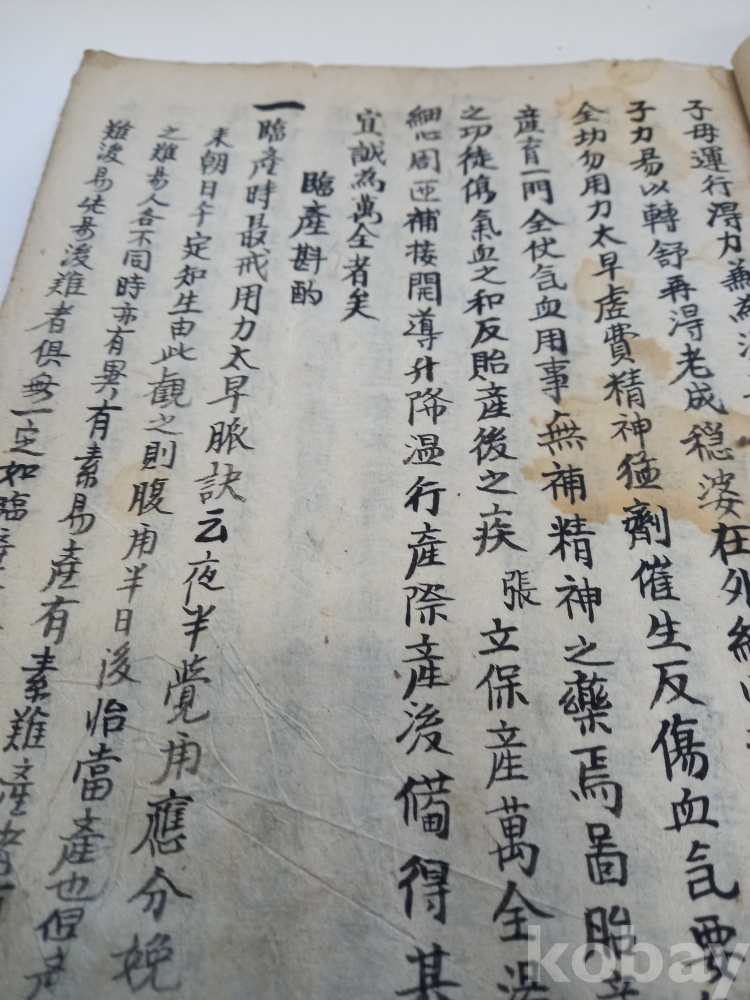 子毋運行得力兼為
子力易以轉舒再得老成穩婆在外
全功勿用力太早虛費精神猛劑催生反傷血气要
產育一門全伏气血用事無補精神之藥焉啚胎
之功徒傷氣血之和反貽產後之疾張立保產萬全湯
細心周匝補接開導升降温行產際產後偹得其
宜誠為萬全者矣
臨產斟酌
一臨產時最戒用力太早脈訣云夜半覺用應分娩
来朝日午定知生由此觀之則腹用半日後怡當產也但產
之難易人各不同時亦有異有素易產有素難產者
難後易先易後難者俱無一定如臨產
kobay